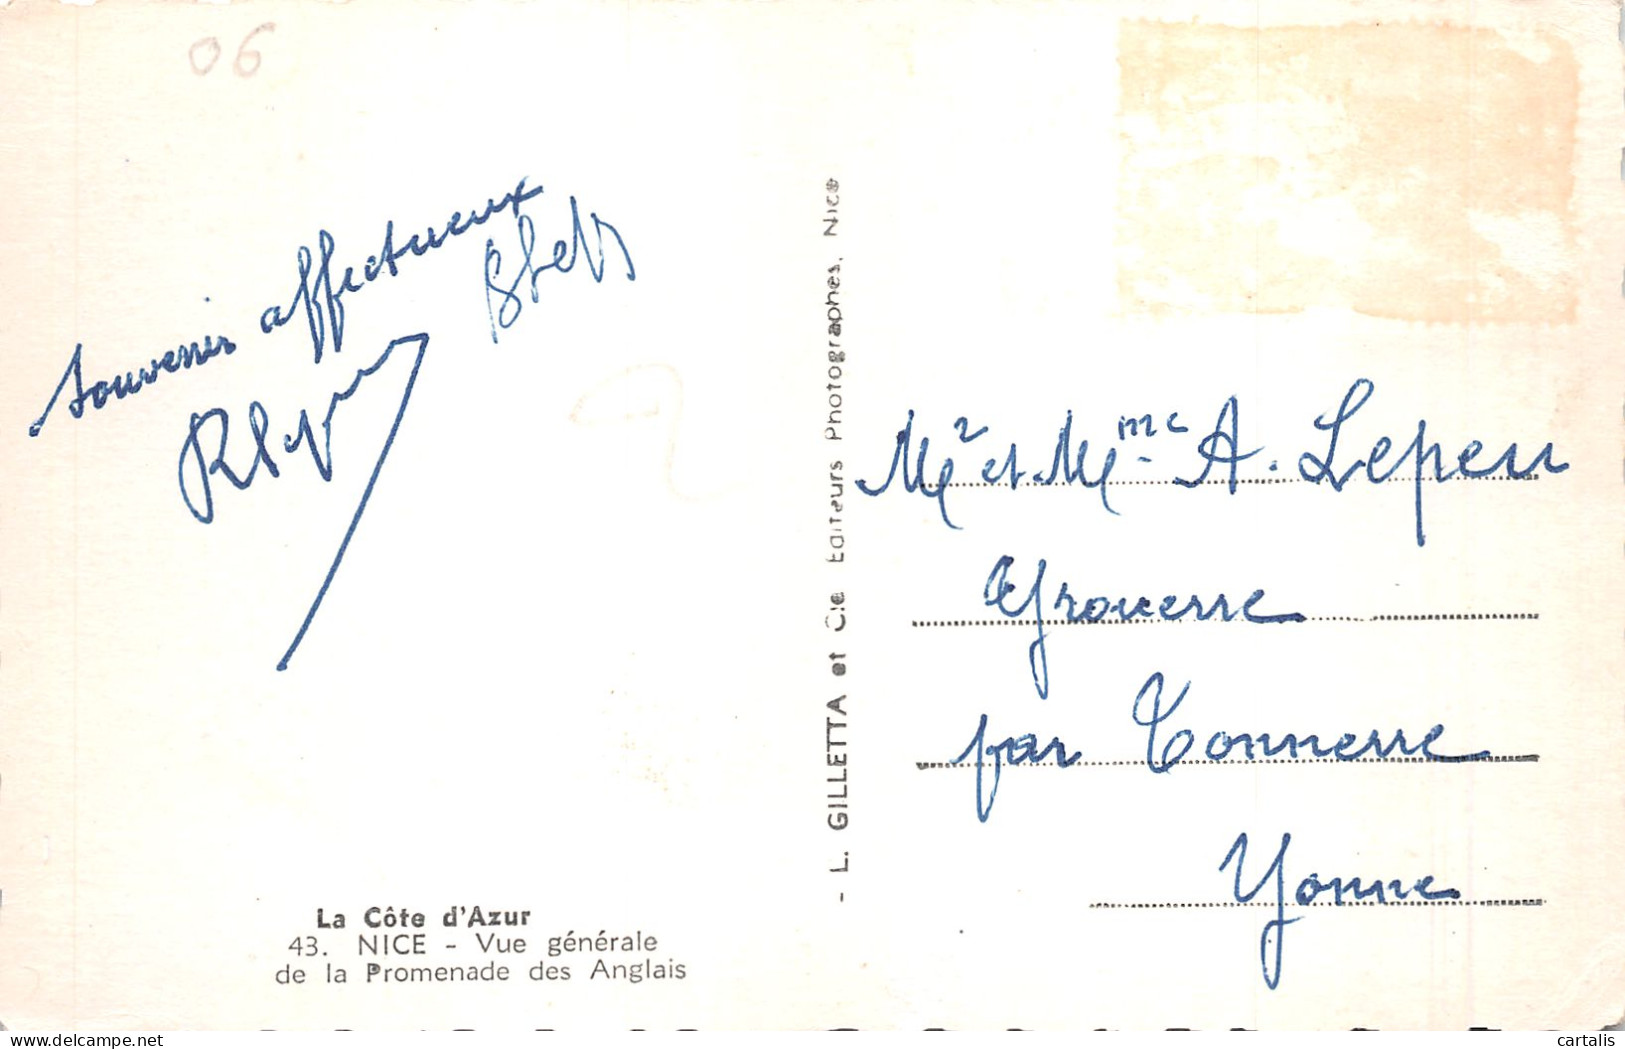 06
Souvenir affectueux
La Côte d'Azur
43. NICE - Vue générale
de la Promenade des Anglais
- L. GILLETTA et Cie Editeurs Photographes, Nice
Mr et Mme A. Lepeu
Yrouerre
par Tonnerre
Yonne
delcampe.net
cartalis